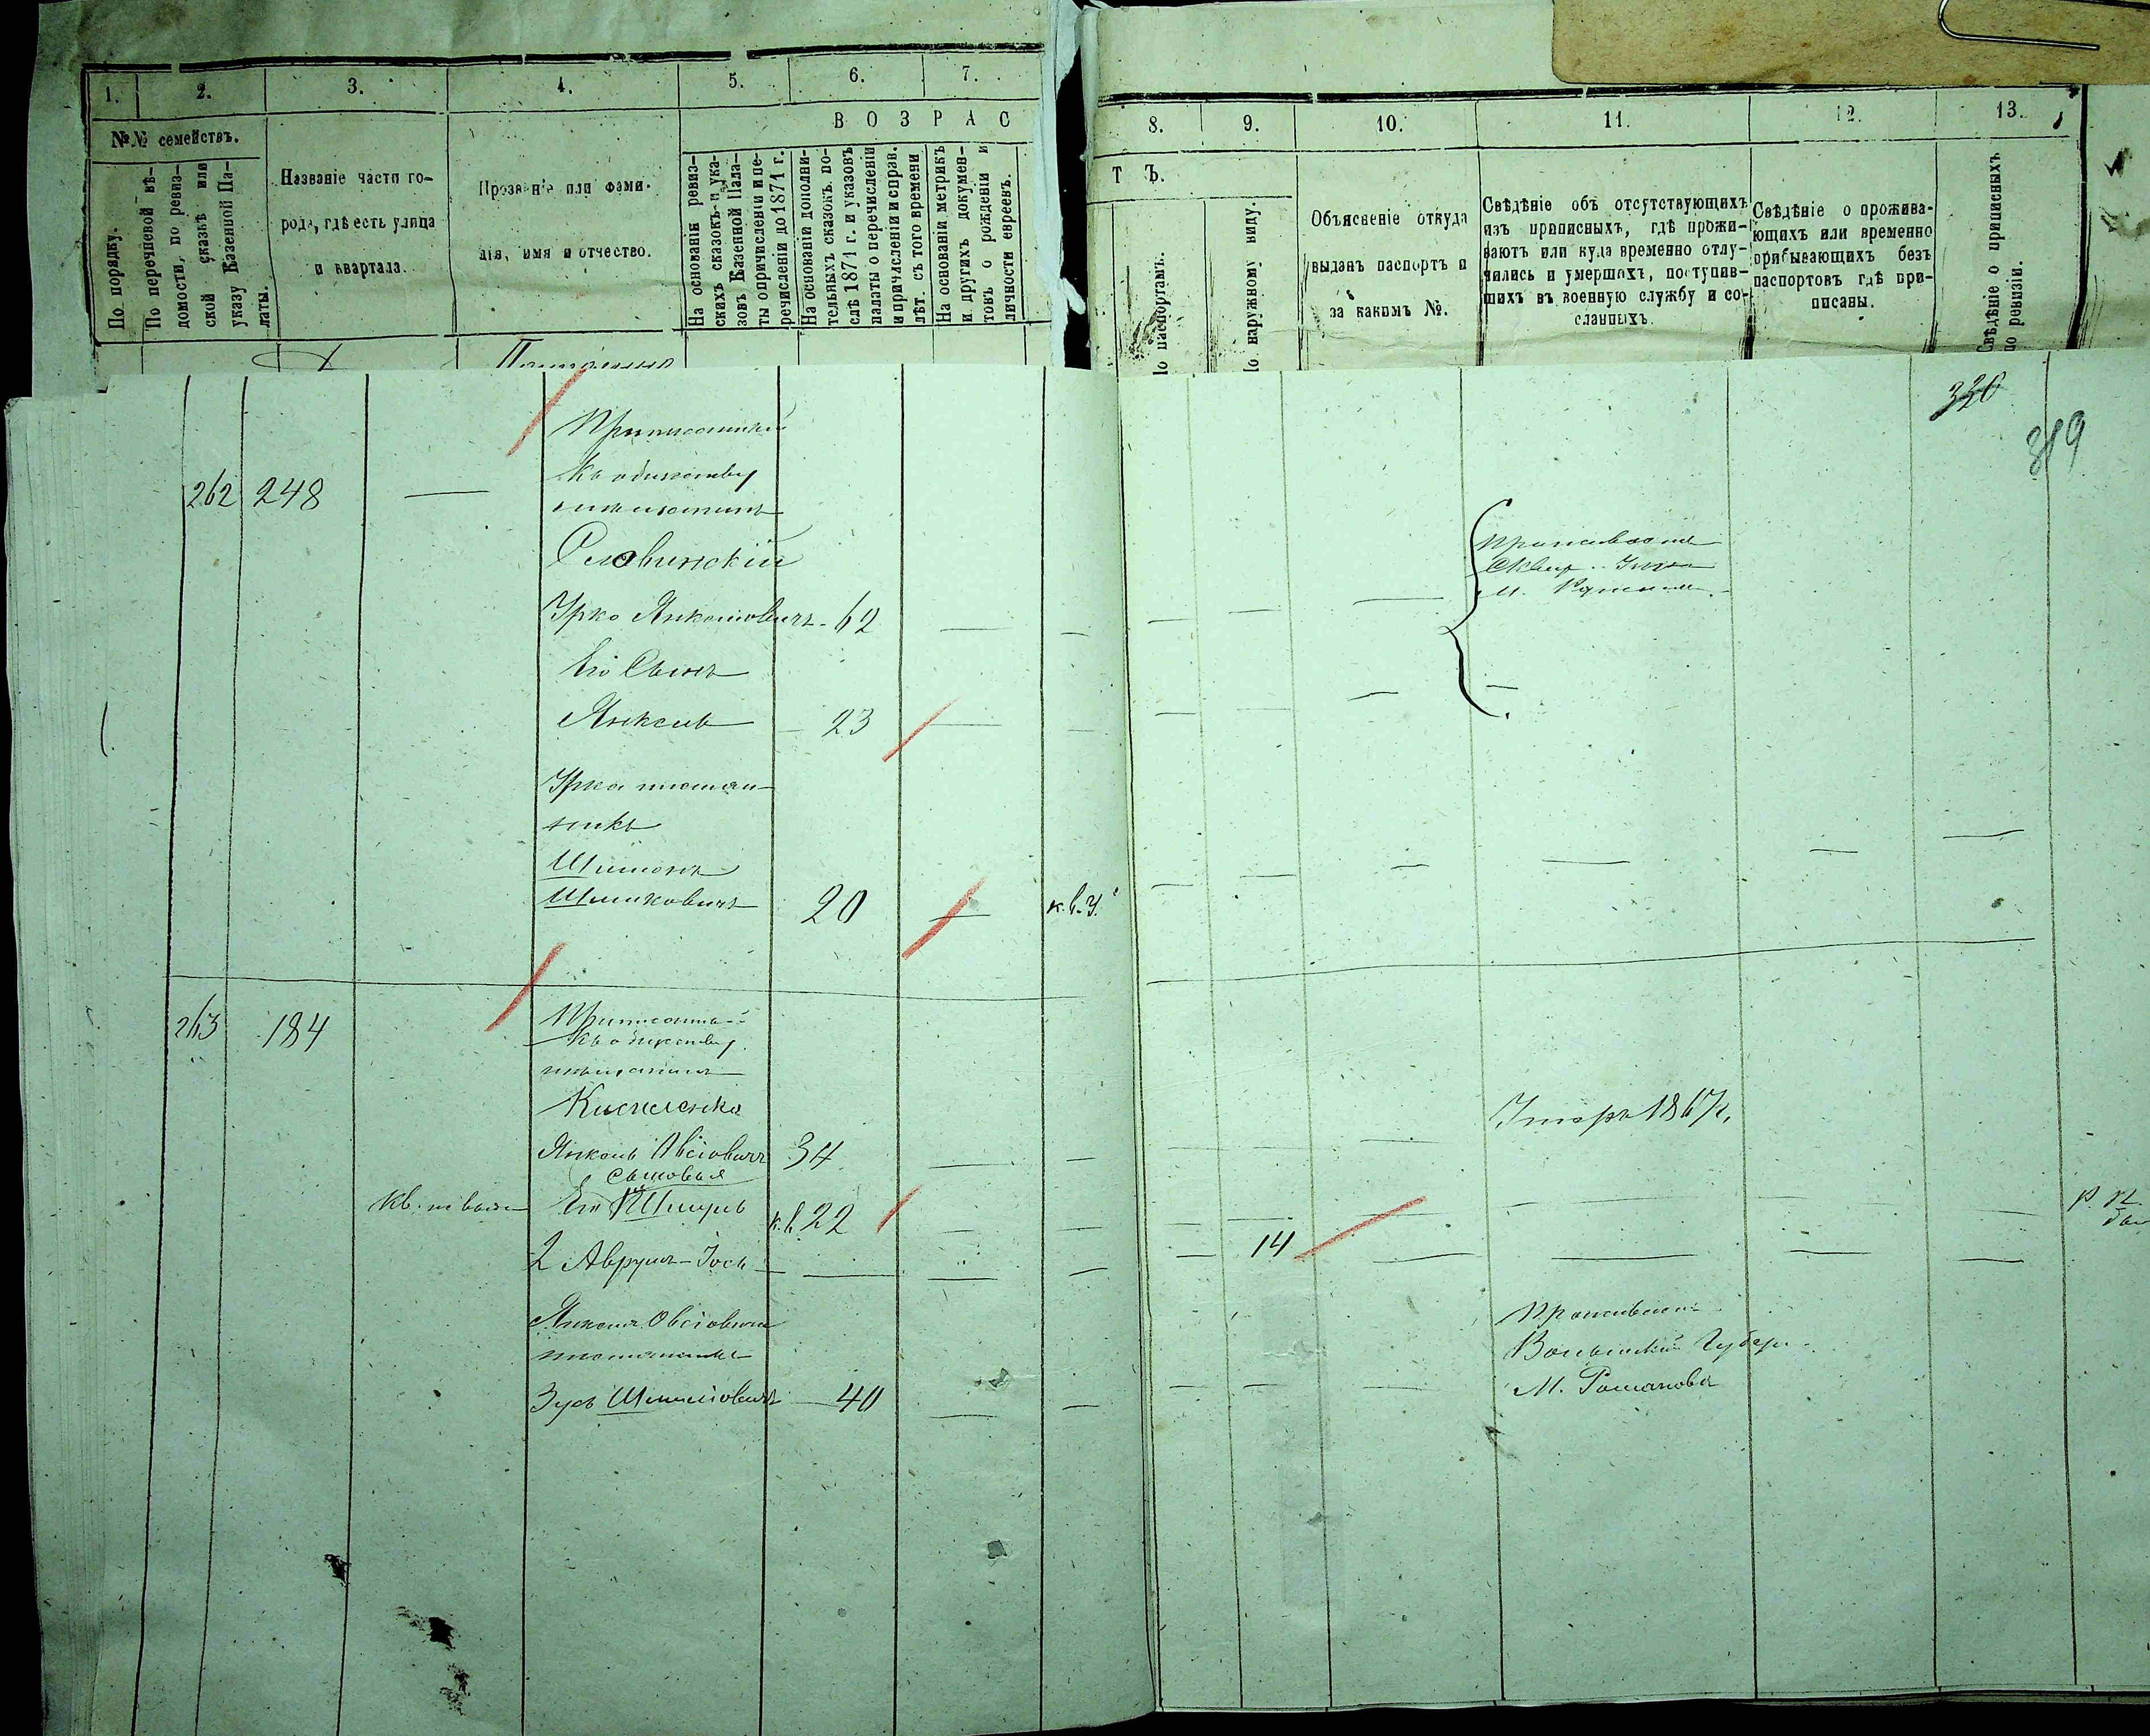 1. 2. 3. 4. 5. 6. 7.
№№ семействъ.
По порядку.
По перечневой вѣ-
домости, по ревиз-
ской сказкѣ или
указу Казенной Па-
латы.
Названіе части го-
рода, гдѣ есть улица
и квартала.
Прозваніе или фами-
лія, имя и отчество.
ВОЗРАС
На основаніи ревиз-
скихъ сказокъ и ука-
зовъ Казенной Пала-
ты о причисленіи и пе-
речисленіи до 1871 г.
На основаніи дополни-
тельныхъ сказокъ по-
слѣ 1871 г. и указовъ
палаты о перечисленіи
и причисленіи и справ.
лѣт. съ того времени
На основаніи метрикъ
и другихъ докумен-
товъ о рожденіи и
личности евреевъ.
8. 9. 10. 11. 12. 13.
ТЪ.
По паспортамъ.
По наружному виду.
Объясненіе откуда
выданъ паспортъ и
за какимъ №.
Свѣдѣніе объ отсутствующихъ
изъ приписныхъ, гдѣ прожи-
ваютъ или куда временно отлу-
чились и умершихъ, поступив-
шихъ въ военную службу и со-
сланныхъ.
Свѣдѣніе о прожива-
ющихъ или временно
прибывающихъ безъ
паспортовъ гдѣ при-
писаны.
Свѣдѣніе о приписныхъ
по ревизіи.
320
319
262 248
Приписанный
къ обществу
мѣщанинъ
Словинскій
Урко Янкелевичъ 62
Его Сынъ
Янкель 23
Урка племян-
никъ
Шимонъ
Шмиковичъ 20
Проживаетъ
Сквир.
М.
263 184
Приписанный
къ обществу
мѣщанинъ
Киселенко
Янкель Овсіовичъ 34
сыновья
Его 1 Шмуль к.в. 22
2 Аврумъ-Іось 14
Янкеля Овсіовича
племянникъ
Зусь Шмиліовичъ 40
Умеръ 1867 г.
Проживаетъ
Волынской Губерн.
М. Романова